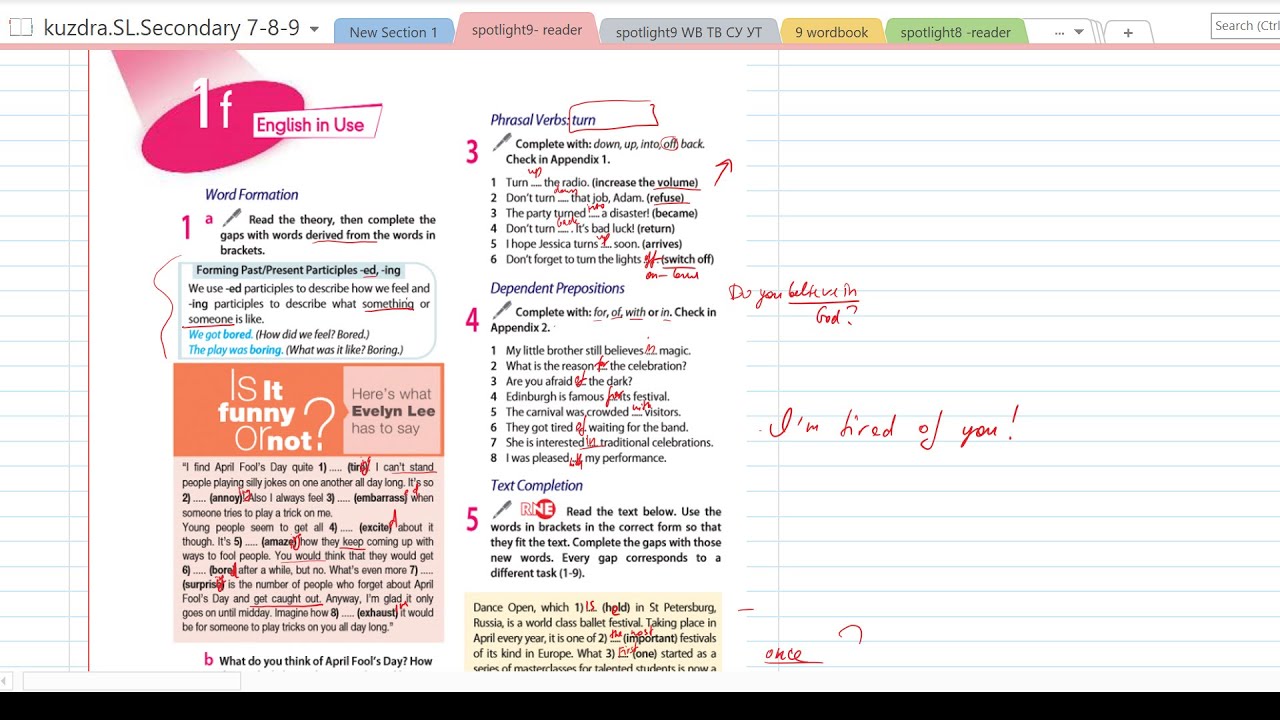 kuzdra.SL.Secondary 7-8-9
New Section 1
spotlight9- reader
spotlight9 WB ТВ СУ УТ
9 wordbook
spotlight8 -reader
...
+
Search (Ctrl
1f
English in Use
Word Formation
1 a Read the theory, then complete the
gaps with words derived from the words in
brackets.
Forming Past/Present Participles -ed, -ing
We use -ed participles to describe how we feel and
-ing participles to describe what something or
someone is like.
We got bored. (How did we feel? Bored.)
The play was boring. (What was it like? Boring.)
Is It
funny
or not?
Here's what
Evelyn Lee
has to say
"I find April Fool's Day quite 1) ..... (tir I can't stand
people playing silly jokes on one another all day long. It's so
2) ..... (annoy) Also I always feel 3) ..... (embarrass) when
someone tries to play a trick on me.
Young people seem to get all 4) ..... (excite) about it
though. It's 5) ..... (amaze) how they keep coming up with
ways to fool people. You would think that they would get
6) ..... (bore) after a while, but no. What's even more 7) .....
(surprise) is the number of people who forget about April
Fool's Day and get caught out. Anyway, I'm glad it only
goes on until midday. Imagine how 8) ..... (exhaust) it would
be for someone to play tricks on you all day long."
b What do you think of April Fool's Day? How
Phrasal Verbs: turn
3 Complete with: down, up, into, off, back.
Check in Appendix 1.
up
1 Turn ..... the radio. (increase the volume)
down
2 Don't turn ..... that job, Adam. (refuse)
into
3 The party turned ..... a disaster! (became)
back
4 Don't turn ..... . It's bad luck! (return)
up
5 I hope Jessica turns ..... soon. (arrives)
6 Don't forget to turn the lights off (switch off)
on – turn
Dependent Prepositions
4 Complete with: for, of, with or in. Check in
Appendix 2.
1 My little brother still believes in magic.
2 What is the reason for the celebration?
3 Are you afraid of the dark?
4 Edinburgh is famous for its festival.
5 The carnival was crowded with visitors.
6 They got tired of waiting for the band.
7 She is interested in traditional celebrations.
8 I was pleased with my performance.
Text Completion
5 RNE Read the text below. Use the
words in brackets in the correct form so that
they fit the text. Complete the gaps with those
new words. Every gap corresponds to a
different task (1-9).
Dance Open, which 1) is (held) in St Petersburg,
Russia, is a world class ballet festival. Taking place in
April every year, it is one of 2) the most (important) festivals
of its kind in Europe. What 3) first (one) started as a
series of masterclasses for talented students is now a
Do you believe in
God?
I'm tired of you!
?
once